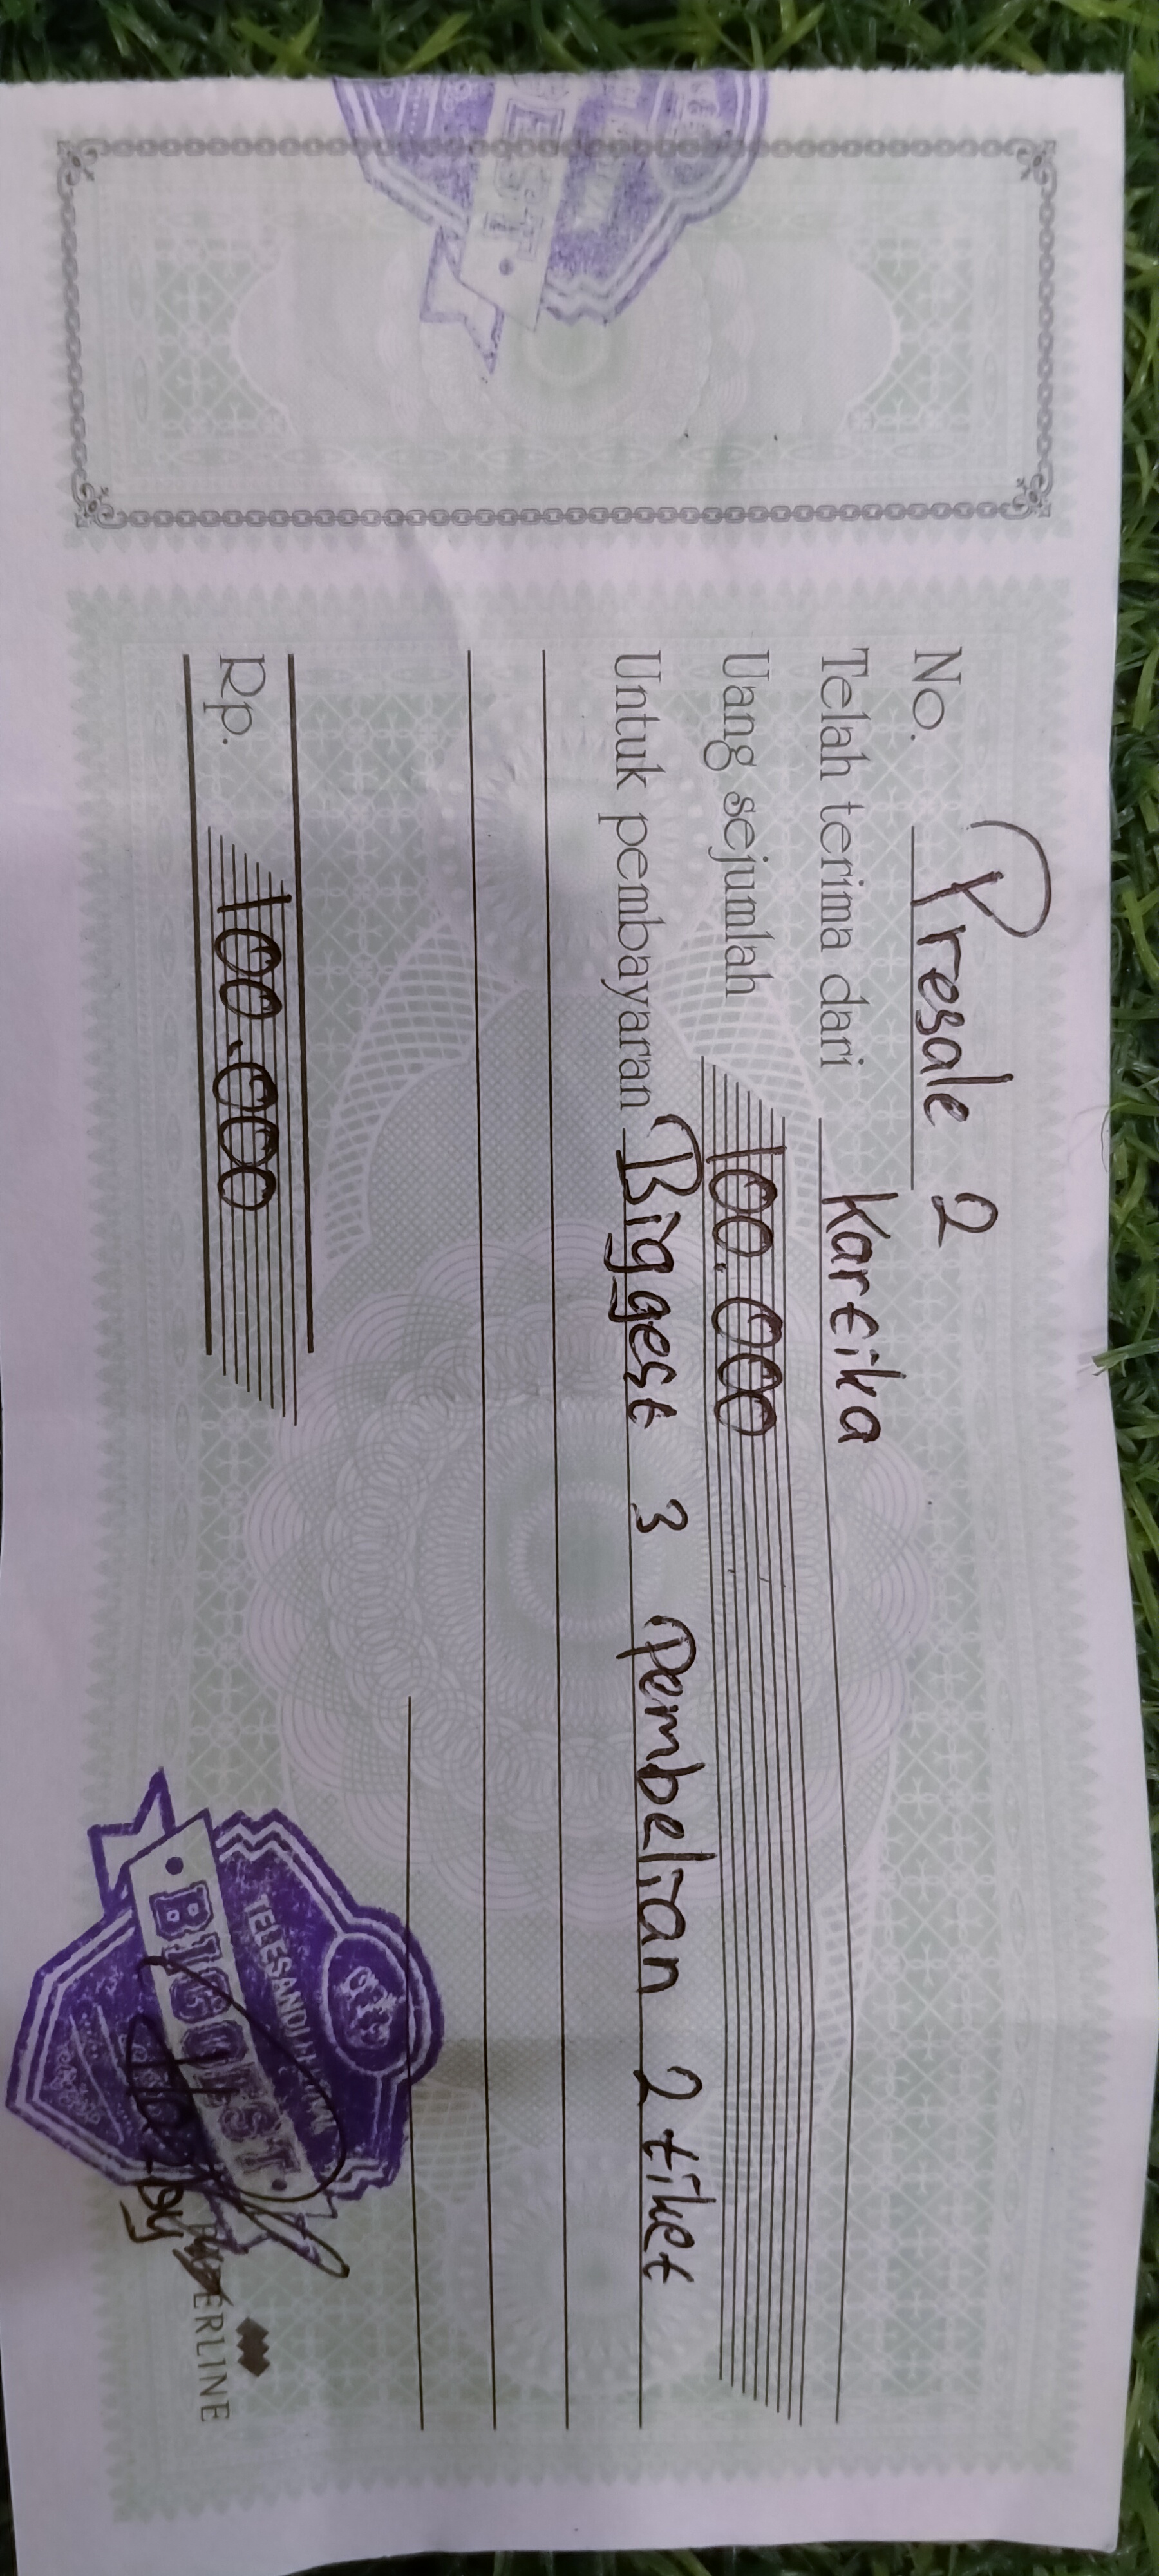 No. Presale 2
Telah terima dari Kartika
Uang sejumlah 100.000
Untuk pembayaran Biggest 3 Pembelian 2 tiket
Rp. 100.000
BIGGEST
EST